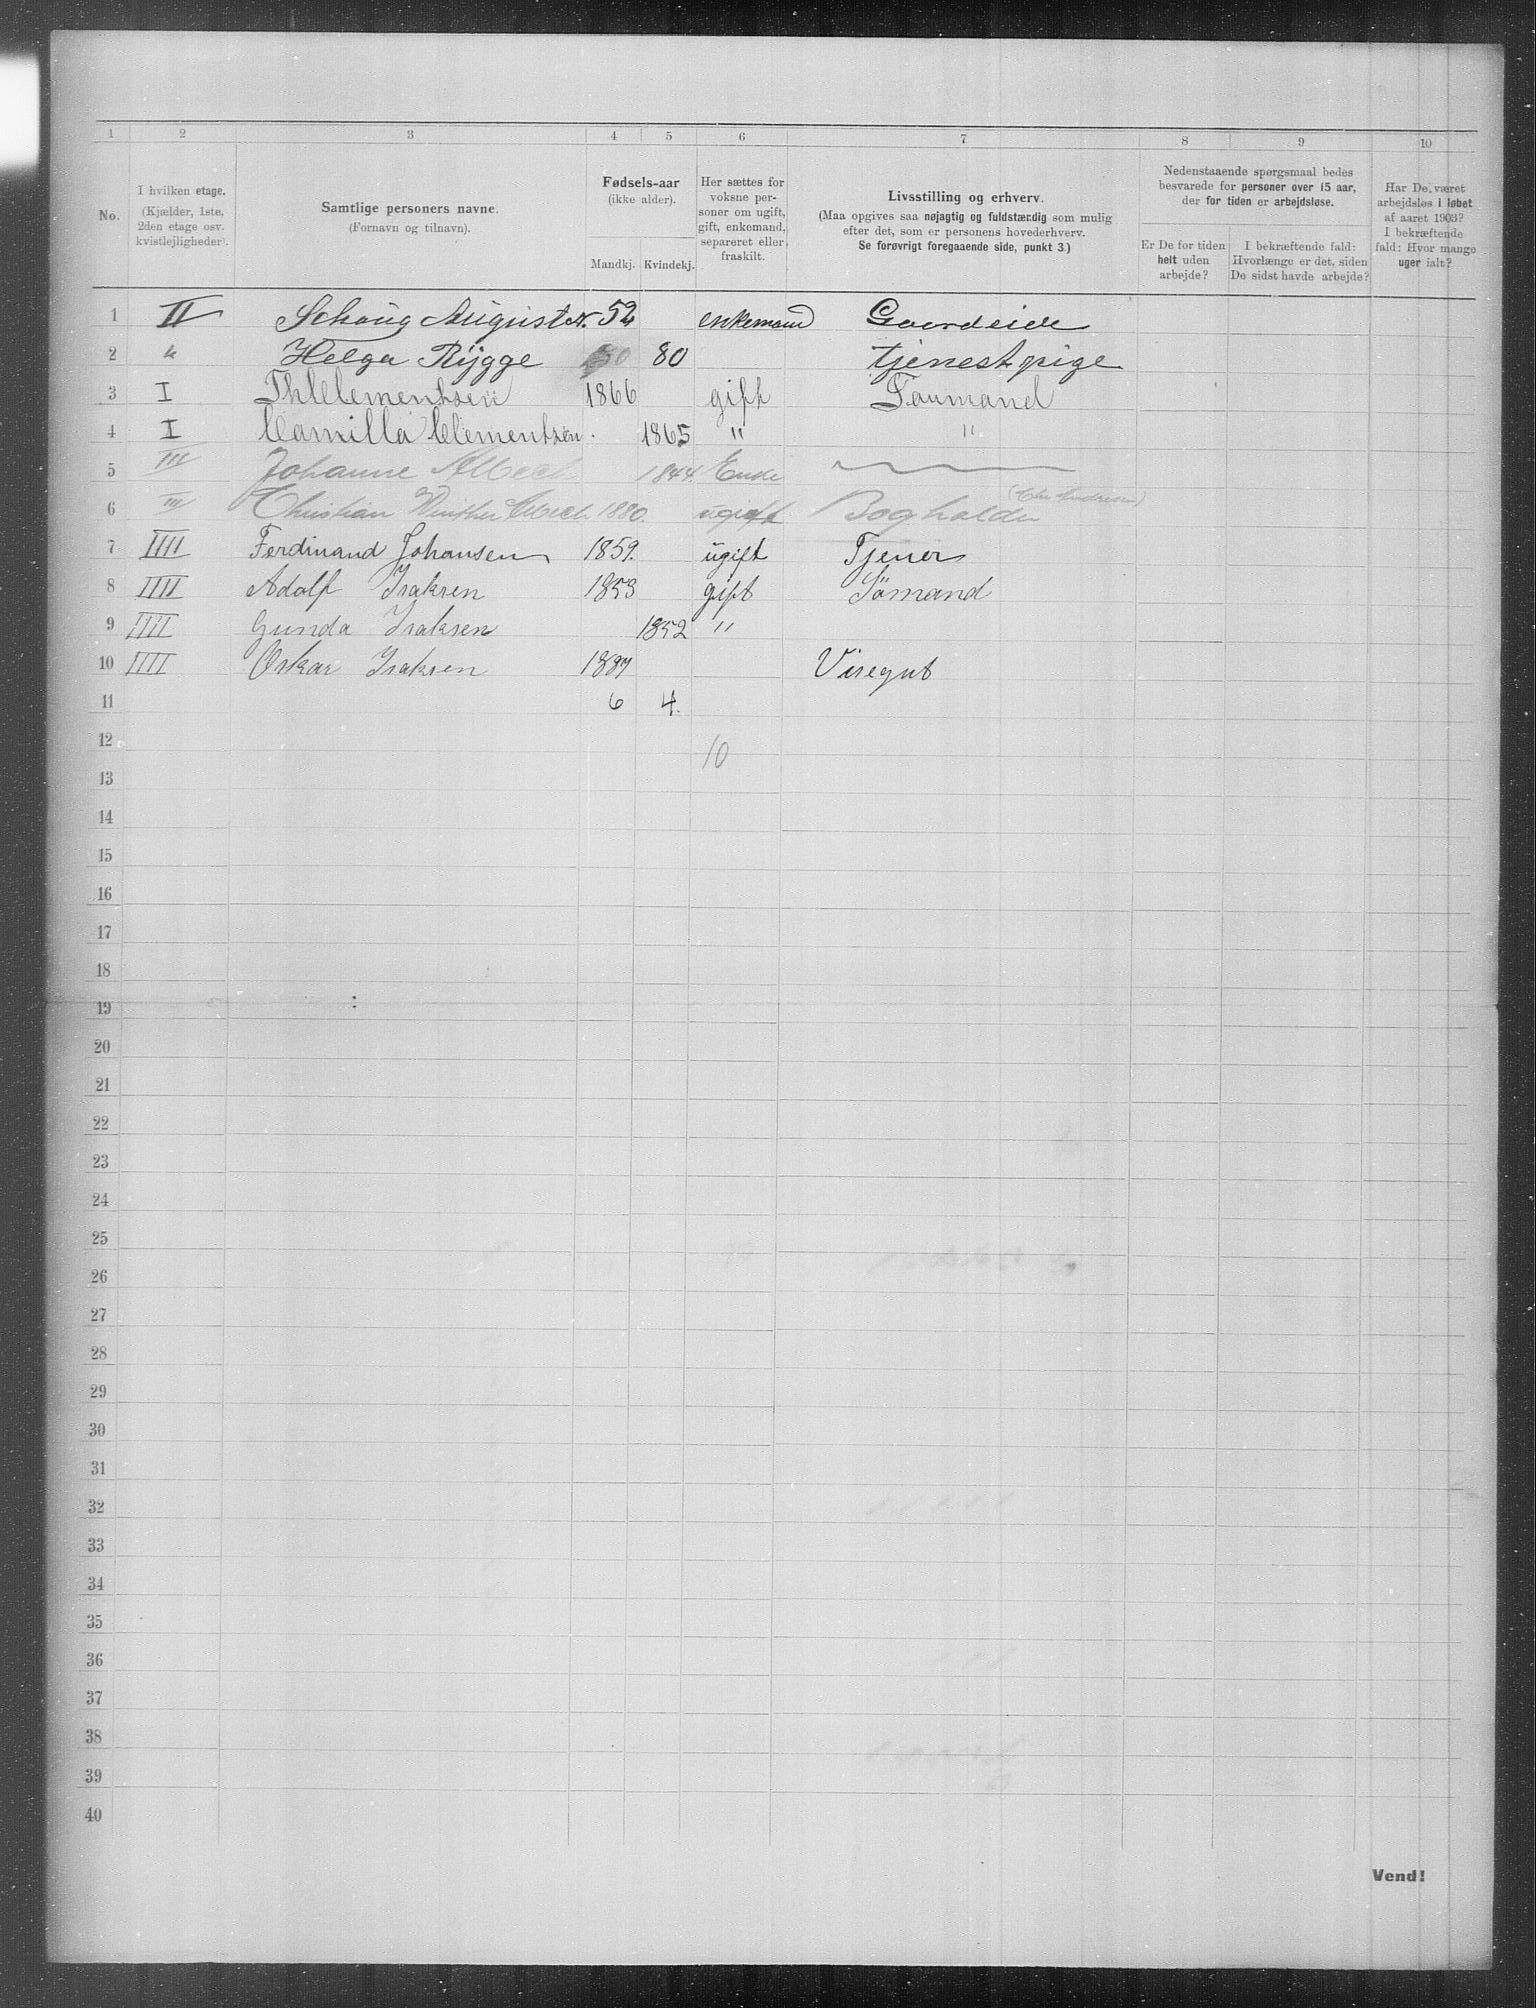 1 2 3 4 5 6 7 8 9 10
No.
I hvilken etage.
(Kjælder, 1ste,
2den etage osv.
kvistlejligheder).
Samtlige personers navne.
(Fornavn og tilnavn).
Fødsels-aar
(ikke alder).
Mandkj. Kvindekj.
Her sættes for
voksne per-
soner om ugift,
gift, enkemand,
separeret eller
fraskilt.
Livsstilling og erhverv.
(Maa opgives saa nøjagtig og fuldstændig som mulig
efter det, som er personens hovederhverv.
Se forøvrigt foregaaende side, punkt 3.)
Nedenstaaende spørgsmaal bedes
besvarede for personer over 15 aar,
der for tiden er arbejdsløse.
Er De for tiden
helt uden
arbejde?
I bekræftende fald:
Hvorlænge er det, siden
De sidst havde arbejde?
Har De været
arbejdsløs i løbet
af aaret 1903?
I bekræftende
fald: Hvor mange
uger ialt?
1 II Schoug August N. 52 enkemand Gaardeide
2 " Helga Rygge 80 tjenestpige
3 I Th Clementsen 1866 gift
4 I Camilla Clementsen. 1865 " "
5 III Johanne 1844 Enke
6 III Christian Winther 1880. ugift Bogholder
7 IIII Ferdinand Johansen 1859. ugift Tjener
8 IIII Adolf Isaksen 1853 gift Sømand
9 IIII Gunda Isaksen 1852 "
10 IIII Oskar Isaksen 1887 Visegut
11 6 4.
12 10
13
14
15
16
17
18
19
20
21
22
23
24
25
26
27
28
29
30
31
32
33
34
35
36
37
38
39
40
Vend!